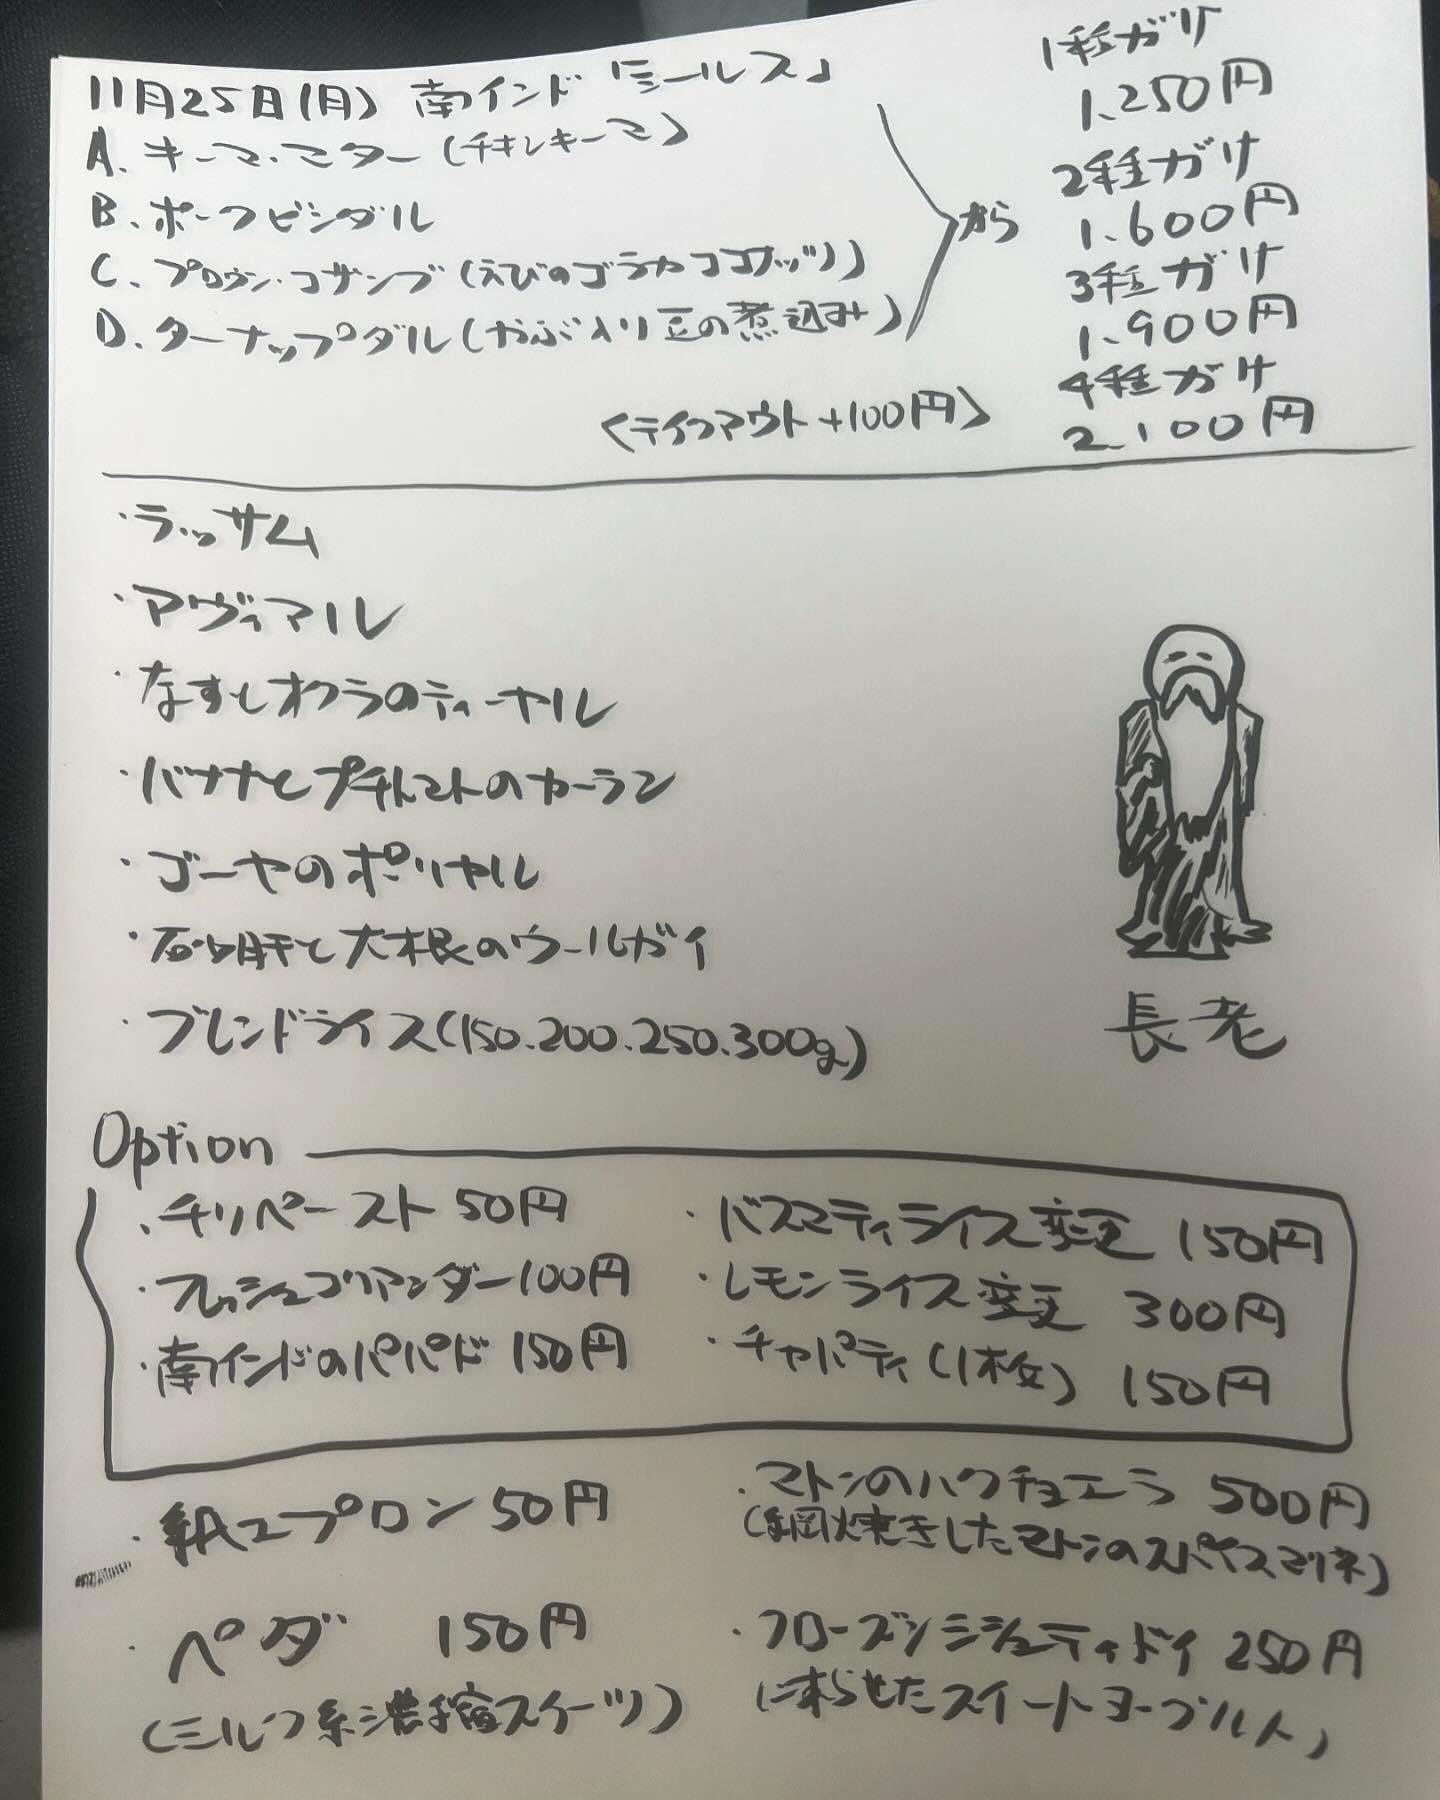 11月25日(月) 南インド「ミールス」
A. キーマ・マター(チキンキーマ)
B. ポークビンダル
C. プロウン・コザンブ(えびのゴラカココナッツ)
D. ターナップダル(かぶ入り豆の煮込み)
から
1種がけ
1,250円
2種ガケ
1,600円
3種ガケ
1,900円
4種ガケ
2,100円
<テイクアウト+100円>
・ラッサム
・アヴィアル
・なすとオクラのティーヤル
・バナナとプチトマトのカーラン
・ゴーヤのポリヤル
・砂肝と大根のウールガイ
・ブレンドライス(150.200.250.300g)
長老
Option
・チリペースト 50円
・フレッシュコリアンダー100円
・南インドのパパド 150円
・バスマティライス変更 150円
・レモンライス変更 300円
・チャパティ(1枚) 150円
・紙エプロン 50円
・ペダ 150円
(ミルク系濃縮スイーツ)
・マトンのハクチョエラ 500円
(網焼きしたマトンのスパイスマリネ)
・フローズンミシュティドイ 250円
凍らせたスイートヨーグルト」